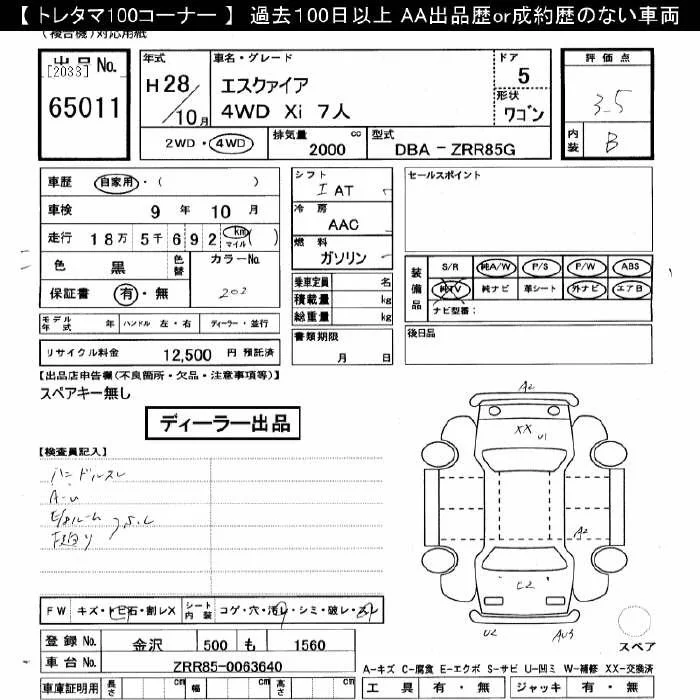 【 トレタマ100コーナー 】 過去100日以上 AA出品歴or成約歴のない車両
(複合機)対応用紙
出品No.
[2033]
65011
年式
H28/10月
車名・グレード
エスクァイア
4WD Xi 7人
ドア
5
形状
ワゴン
評価点
3.5
内装
B
2WD・4WD
排気量
2000
cc
型式
DBA - ZRR85G
車歴
自家用・( )
車検
9年10月
走行
18万5千692
km
マイル
( )
色
黒
色替
カラーNo.
202
保証書
有・無
シフト
I AT
冷房
AAC
燃料
ガソリン
乗車定員 名
積載量 kg
総重量 kg
書類期限
月 日
セールスポイント
装備品
S/R 純A/W P/S P/W ABS
純TV 純ナビ 革シート 外ナビ エアB
ナビ型番:
後日品
モデル年式 年 ハンドル 左・右 ディーラー・並行
リサイクル料金 12,500 円 預託済
【出品店申告欄(不良箇所・欠品・注意事項等)】
スペアキー無し
ディーラー出品
【検査員記入】
ハンドルスレ
A-U
S.L
A2
XX
U1
A2
E2
U2
AU3
スペア
FW キズ・トビ石・割レX
シート内装
コゲ・穴・汚レ・シミ・破レ・スレ
登録No.
金沢 500 も 1560
車台No.
ZRR85-0063640
車庫証明用
長さ cm
幅 cm
高さ cm
A-キズ C-腐食 E-エクボ S-サビ U-凹ミ W-補修 XX-交換済
工具 有・無 ジャッキ 有・無